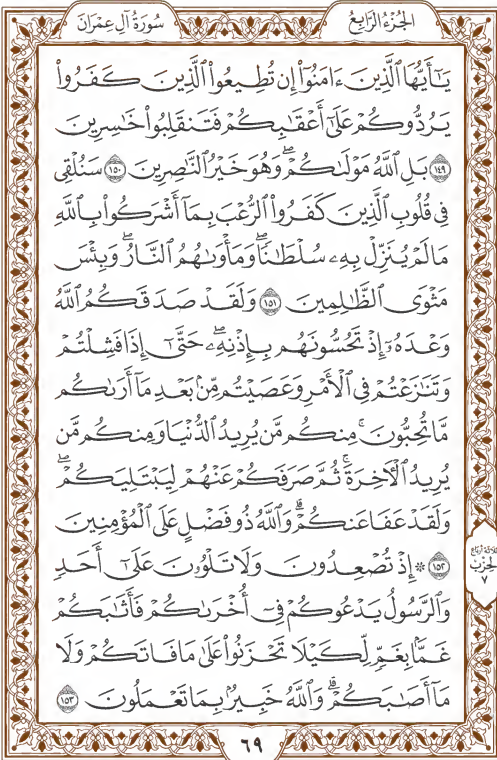 سُورَةُ آلِ عِمْرَانَ
الجُزْءُ الرَّابِعُ
يَٰٓأَيُّهَا ٱلَّذِينَ ءَامَنُوٓاْ إِن تُطِيعُواْ ٱلَّذِينَ كَفَرُواْ
يَرُدُّوكُمْ عَلَىٰٓ أَعْقَٰبِكُمْ فَتَنقَلِبُواْ خَٰسِرِينَ
١٤٩ بَلِ ٱللَّهُ مَوْلَىٰكُمْۖ وَهُوَ خَيْرُ ٱلنَّٰصِرِينَ ١٥٠ سَنُلْقِى
فِى قُلُوبِ ٱلَّذِينَ كَفَرُواْ ٱلرُّعْبَ بِمَآ أَشْرَكُواْ بِٱللَّهِ
مَا لَمْ يُنَزِّلْ بِهِۦ سُلْطَٰنًاۖ وَمَأْوَىٰهُمُ ٱلنَّارُۖ وَبِئْسَ
مَثْوَى ٱلظَّٰلِمِينَ ١٥١ وَلَقَدْ صَدَقَكُمُ ٱللَّهُ
وَعْدَهُۥٓ إِذْ تَحُسُّونَهُم بِإِذْنِهِۦۖ حَتَّىٰٓ إِذَا فَشِلْتُمْ
وَتَنَٰزَعْتُمْ فِى ٱلْأَمْرِ وَعَصَيْتُم مِّنۢ بَعْدِ مَآ أَرَىٰكُم
مَّا تُحِبُّونَۚ مِنكُم مَّن يُرِيدُ ٱلدُّنْيَا وَمِنكُم مَّن
يُرِيدُ ٱلْأٓخِرَةَۚ ثُمَّ صَرَفَكُمْ عَنْهُمْ لِيَبْتَلِيَكُمْۖ
وَلَقَدْ عَفَا عَنكُمْۗ وَٱللَّهُ ذُو فَضْلٍ عَلَى ٱلْمُؤْمِنِينَ
١٥٢ ۞ إِذْ تُصْعِدُونَ وَلَا تَلْوُۥنَ عَلَىٰٓ أَحَدٍ
وَٱلرَّسُولُ يَدْعُوكُمْ فِىٓ أُخْرَىٰكُمْ فَأَثَٰبَكُمْ
غَمَّۢا بِغَمٍّ لِّكَيْلَا تَحْزَنُواْ عَلَىٰ مَا فَاتَكُمْ وَلَا
مَآ أَصَٰبَكُمْۗ وَٱللَّهُ خَبِيرٌۢ بِمَا تَعْمَلُونَ ١٥٣
ثلاثة أرباع
الحِزْب
٧
٦٩